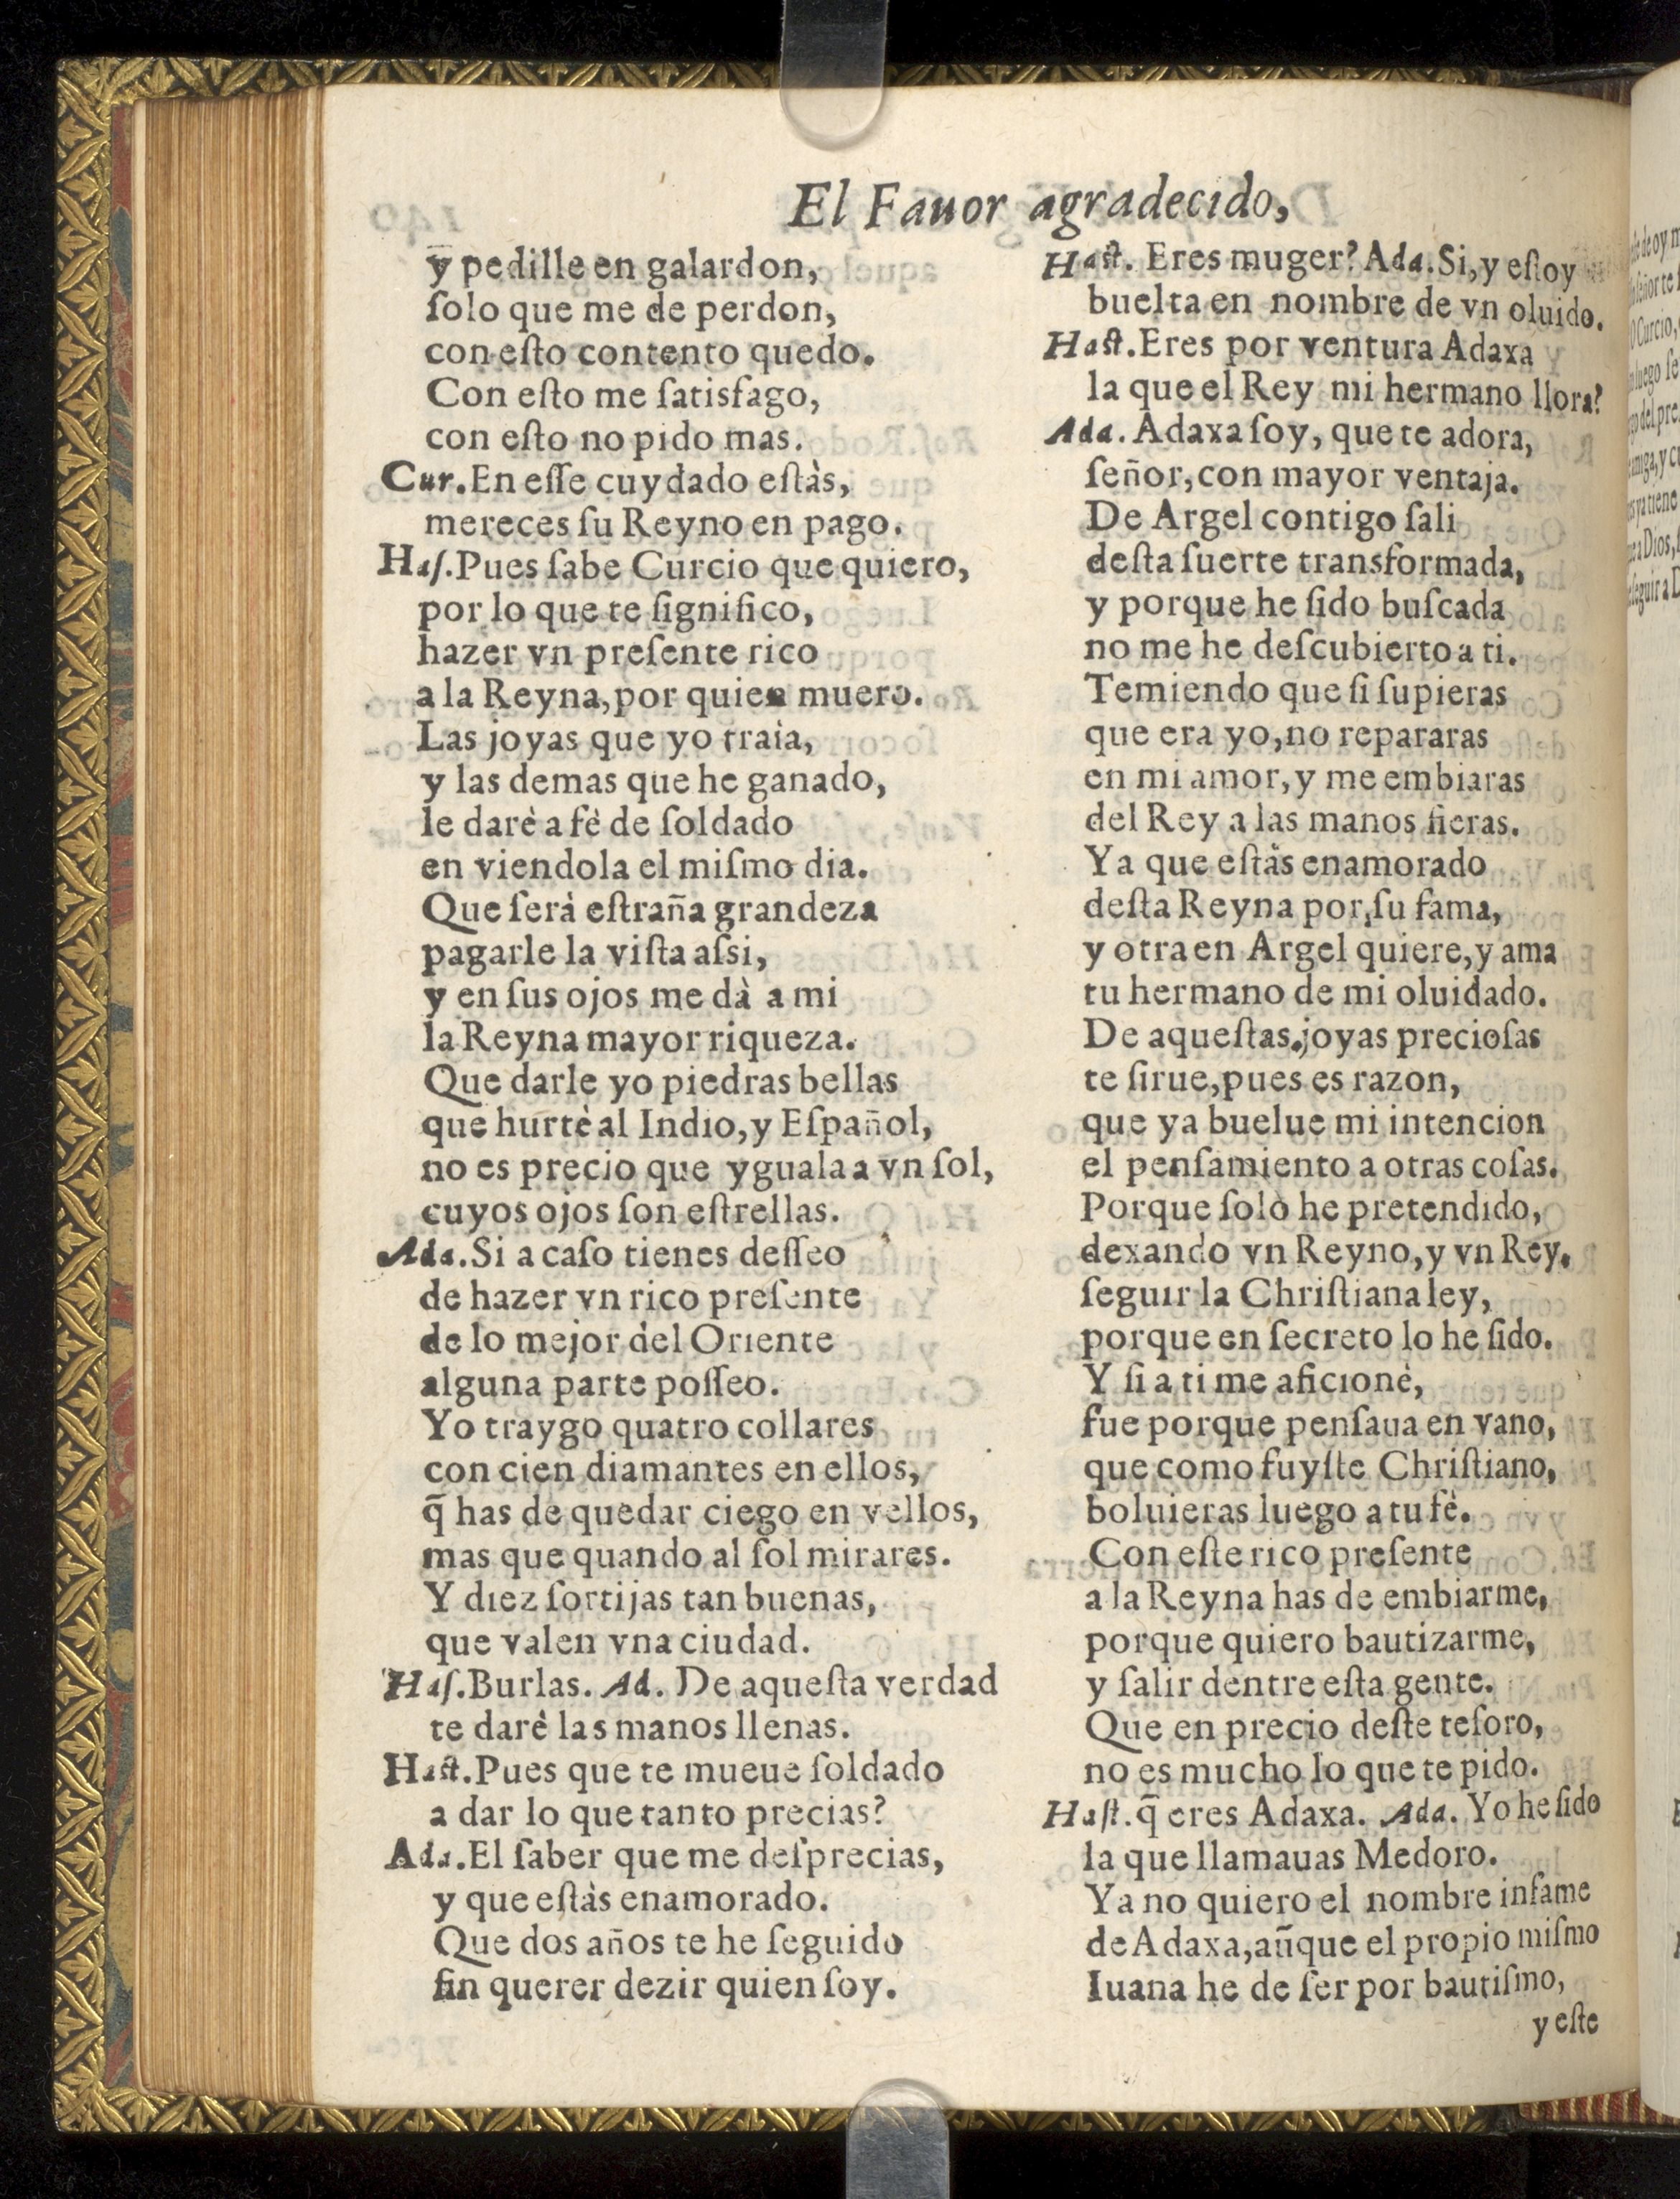 El Fauor agradecido,
y pedille en galardon,
ſolo que me de perdon,
con eſto contento quedo.
Con eſto me ſatisfago,
con eſto no pido mas.
Cur. En eſſe cuydado eſtàs,
mereces ſu Reyno en pago.
Haſ. Pues ſabe Curcio que quiero,
por lo que te ſignifico,
hazer vn preſente rico
a la Reyna, por quien muero.
Las joyas que yo traìa,
y las demas que he ganado,
le darè a fè de ſoldado
en viendola el miſmo dia.
Que ſerà eſtraña grandeza
pagarle la viſta aſsi,
y en ſus ojos me dà a mi
la Reyna mayor riqueza.
Que darle yo piedras bellas
que hurtè al Indio, y Eſpañol,
no es precio que yguala a vn ſol,
cuyos ojos ſon eſtrellas.
Ada. Si a caſo tienes deſſeo
de hazer vn rico preſente
de lo mejor del Oriente
alguna parte poſſeo.
Yo traygo quatro collares
con cien diamantes en ellos,
q̃ has de quedar ciego en vellos,
mas que quando al ſol mirares.
Y diez ſortijas tan buenas,
que valen vna ciudad.
Haſ. Burlas. Ad. De aqueſta verdad
te darè las manos llenas.
Haſt. Pues que te mueue ſoldado
a dar lo que tanto precias?
Ada. El ſaber que me deſprecias,
y que eſtàs enamorado.
Que dos años te he ſeguido
ſin querer dezir quien ſoy.
Haſt. Eres muger? Ada. Si, y eſtoy
buelta en nombre de vn oluido.
Haſt. Eres por ventura Adaxa
la que el Rey mi hermano llora?
Ada. Adaxa ſoy, que te adora,
ſeñor, con mayor ventaja.
De Argel contigo ſali
deſta ſuerte transformada,
y porque he ſido buſcada
no me he deſcubierto a ti.
Temiendo que ſi ſupieras
que era yo, no repararas
en mi amor, y me embiaras
del Rey a las manos fieras.
Ya que eſtàs enamorado
deſta Reyna por ſu fama,
y otra en Argel quiere, y ama
tu hermano de mi oluidado.
De aqueſtas joyas precioſas
te ſirue, pues es razon,
que ya buelue mi intencion
el penſamiento a otras coſas.
Porque ſolo he pretendido,
dexando vn Reyno, y vn Rey,
ſeguir la Chriſtiana ley,
porque en ſecreto lo he ſido.
Y ſi a ti me aficionè,
fue porque penſaua en vano,
que como fuyſte Chriſtiano,
boluieras luego a tu fè.
Con eſte rico preſente
a la Reyna has de embiarme,
porque quiero bautizarme,
y ſalir dentre eſta gente.
Que en precio deſte teſoro,
no es mucho lo que te pido.
Haſt. q̃ eres Adaxa. Ada. Yo he ſido
la que llamauas Medoro.
Ya no quiero el nombre infame
de Adaxa, aũque el propio miſmo
Iuana he de ſer por bautiſmo,
y eſte